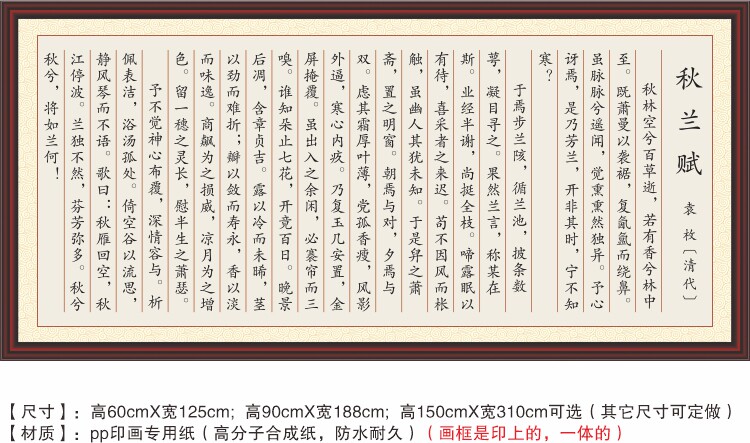 秋兰赋
袁枚〔清代〕
秋林空兮百草逝,若有香兮林中
至。既萧曼以袭裾,复氤氲而绕鼻。
虽脉脉兮遥闻,觉熏熏然独异。予心
讶焉,是乃芳兰,开非其时,宁不知
寒?
于焉步兰陔,循兰池,披条数
萼,凝目寻之。果然兰言,称某在
斯。业经半谢,尚挺全枝。啼露眠以
有待,喜采者之来迟。苟不因风而枨
触,虽幽人其犹未知。于是舁之萧
斋,置之明窗。朝焉与对,夕焉与
双。虑其霜厚叶薄,党孤香瘦,风影
外逼,寒心内疚。乃复玉几安置,金
屏掩覆。虽出入之余闲,必褰帘而三
嗅。谁知朵止七花,开竟百日。晚景
后凋,含章贞吉。露以冷而未晞,茎
以劲而难折;瓣以敛而寿永,香以淡
而味逸。商飙为之损威,凉月为之增
色。留一穗之灵长,慰半生之萧瑟。
予不觉神心布覆,深情容与。析
佩表洁,浴汤孤处。倚空谷以流思,
静风琴而不语。歌曰:秋雁回空,秋
江停波。兰独不然,芬芳弥多。秋兮
秋兮,将如兰何!
【尺寸】:高60cmX宽125cm; 高90cmX宽188cm; 高150cmX宽310cm可选(其它尺寸可定做)
【材质】:pp印画专用纸(高分子合成纸,防水耐久)(画框是印上的,一体的)